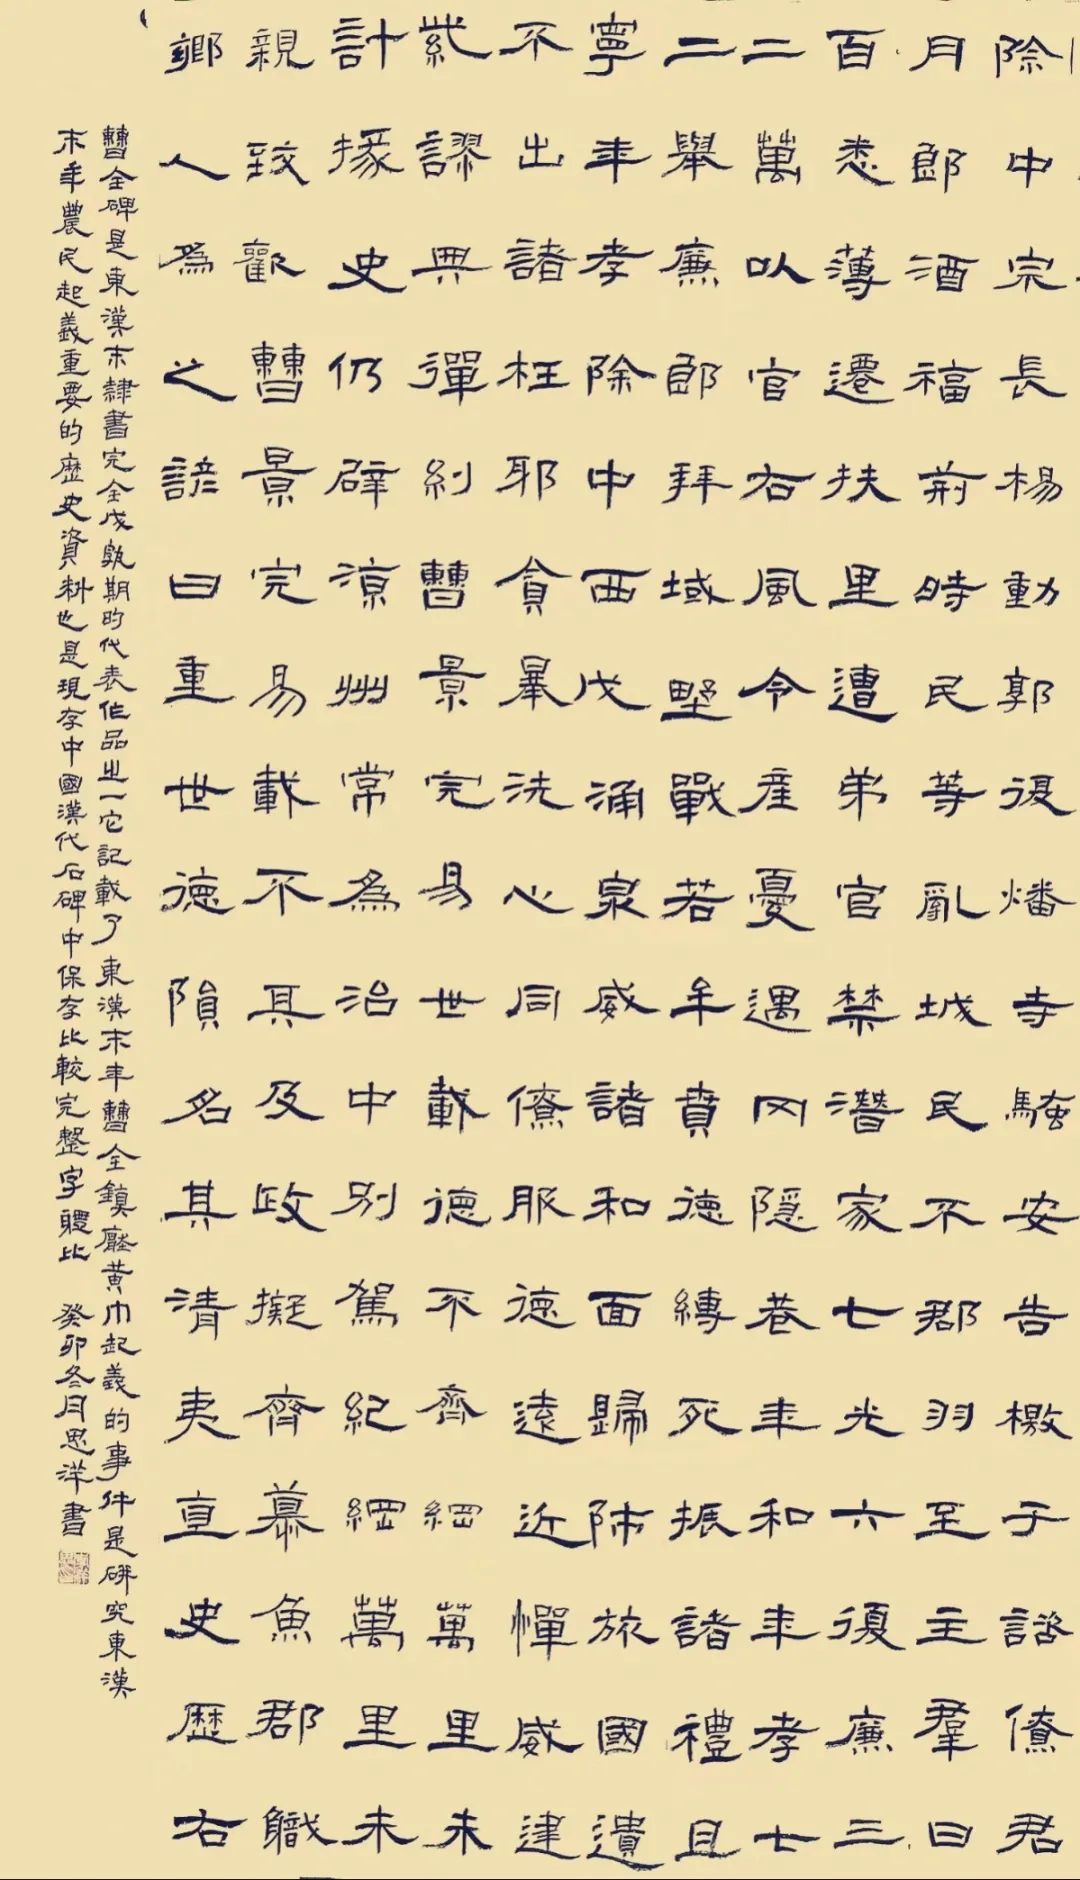 除中宗長楊動郭復燔寺騷安告檄于諮僚君
月郎酒福荊時民等亂城民不郡羽至主羣曰
百悉薄遷扶里遭弟官禁潛家七光六復廉三
二萬以官右風令產憂遇冈隱巷年和年孝七
二舉廉郎拜域野戰若年賁德縛死振諸禮且
寧年孝除中西戊涌泉威諸和面歸師旅國遺
不出諸枉耶貪畢洗心同僚服德遠近憚威建
紫謬典彈糾曹景完易世載德不齊綱萬里朱
計掾史仍辟涼州常為治中別駕紀綱萬里朱
親致歡曹景完易載不其及政擬齊慕魚郡職
鄉人為之諺曰重世德隕名其清夷直史歷右
曹全碑是東漢末隸書完全成孰期的代表作品之一它記載了東漢末年曹全鎮壓黃巾起義的事件是研究東漢
末年農民起義重要的歷史資料也是現存中國漢代石碑中保存比較完整字體比 癸卯冬月思洋書